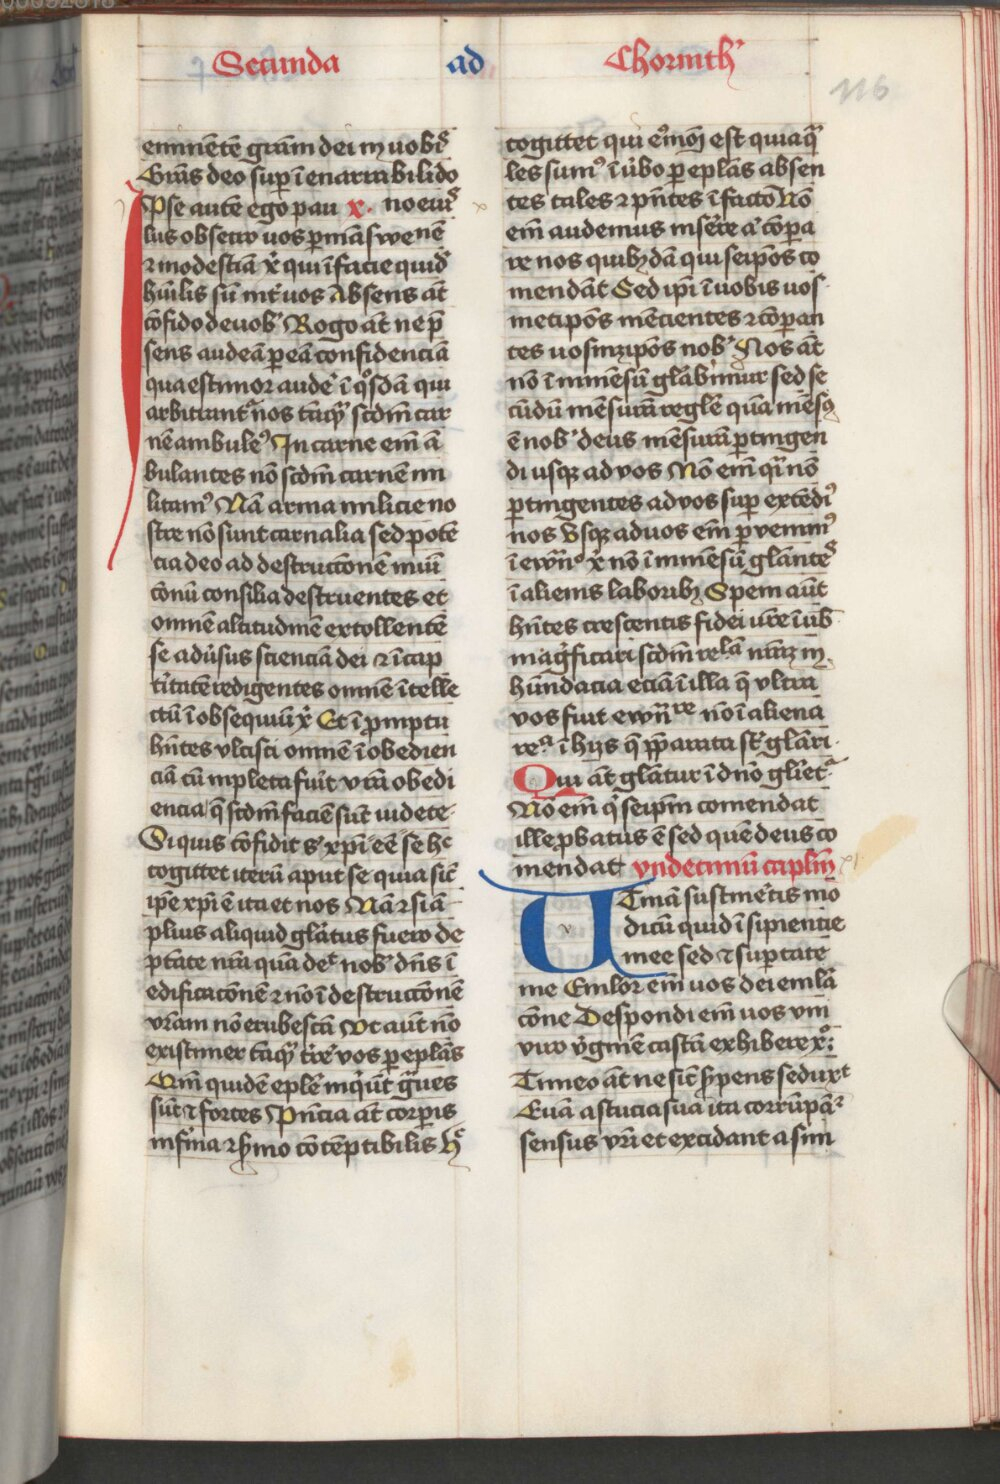 Secunda ad Chorinth᾽
116
eminentē grām dei in vobis
Grās deo sup̱ ī enarrabili do
Ipse autē ego pau x. no eius
lus obsecro uos p̱ māswenē
⁊ modestiā xp̄i qui ī facie quid̄
hūilis sū int̄ uos Absens āt
cōfido de uob᾽ Rogo āt ne p̄
sens audeā p̱ eā confidenciā
qua estimor aude᾽ ī qͦsdā qui
arbitrant᾽ nos tāqͣ scdm̄ car
nē ambule᾽ In carne em̄ ā
bulantes nō scdm̄ carnē mi
litam᾽ Nā arma milicie no
stre nō sunt carnalia sed potē
cia deo ad destructionē muni
cōnū consilia destruentes et
omnē altitudinē extollentē
se adūsus scienciā dei ⁊ ī cap
titatē redigentes omnē ītelle
ctū ī obsequiū xp̄i Et ī promptu
hn̄tes vlcisci omnē īobedien
ciā cū impleta fuīt vrā obedi
encia q̄ scdm̄ faciē sūt uidete
Siquis cōfidit s᾽ xp̄i eē se hͨ
cogittet iterū aput se quia sic̄
ip̄e xp̄i ē ita et nos Nā ⁊ si ā
plius aliquid glāтus fuero de
p̱tate nr̄a quā de᾽ nob᾽ dn̄s ī
edificatōnē ⁊ nō ī destructionē
vrām nō erubescā Vt aūt nō
existimer tāqͣ t̄re᾽ vos p̱ ep̄lās
Qm̄ quidē ep̄le inqūt gͣues
sūt ⁊ fortes Pn̄cia āt corpis
infirma ⁊ smo cōtēptibilis hͦ
cogittet qui em̄oī est quia qͣ
les sum᾽ ī ūbo p̱ ep̄lās absen
tes tales ⁊ pn̄tes ī facto Nō
em̄ audemus inse᾽re a᾽ cōpa
re nos quibꝫdā qui seipōs co
mendāt Sed ip̄i ī uobis uos
metipōs mēcientes ⁊ cōpan
tes uosmꝫipōs nob᾽ Nos āt
nō ī inmēsū glābimur sed se
cūdū mēsurā regle quā mēsꝯ
ē nob᾽ deus mēsurā p̱tingen
di usqꝫ ad vos Nō em̄ qͣ nō
p̱tingentes ad vos sup̱ extēdi᾽
nos Vsqꝫ ad uos em̄ p̱ venim᾽
ī ewn̄o xp̄i nō ī inmēsū glāntes
ī alienis laboribꝫ Spem aūt
hn̄tes crescentis fidei vr̄e ī vob᾽
magͣficari scdm̄ reḡlā nrāꝫ in
hūndacia eciā ī illa q̄ vltra
vos fūt ewn̄re nō ī aliena
reᷓ ī hijs q̄ p̄parata st᾽ glāri
Qui āt glātur ī dn̄o gl̄iet᾽
Nō em̄ q̄ seip̄m comendat
ille p̱batus ē sed quē deus co
mendat vndecimū caplm̄ xi
Vtinā sustine᾽tis mo
dicū quid īsipientie
mee sed ⁊ sup̱tate
me Emlor em̄ uos dei emlā
cōne Despondi em̄ uos vni
viro v᾽ginē castā exhibere xp̄o
Timeo āt ne sic̄ s᾽pens sedux᾽t
Euā astucia sua ita corrūpā᾽
sensus vr̄i et excidant a sim